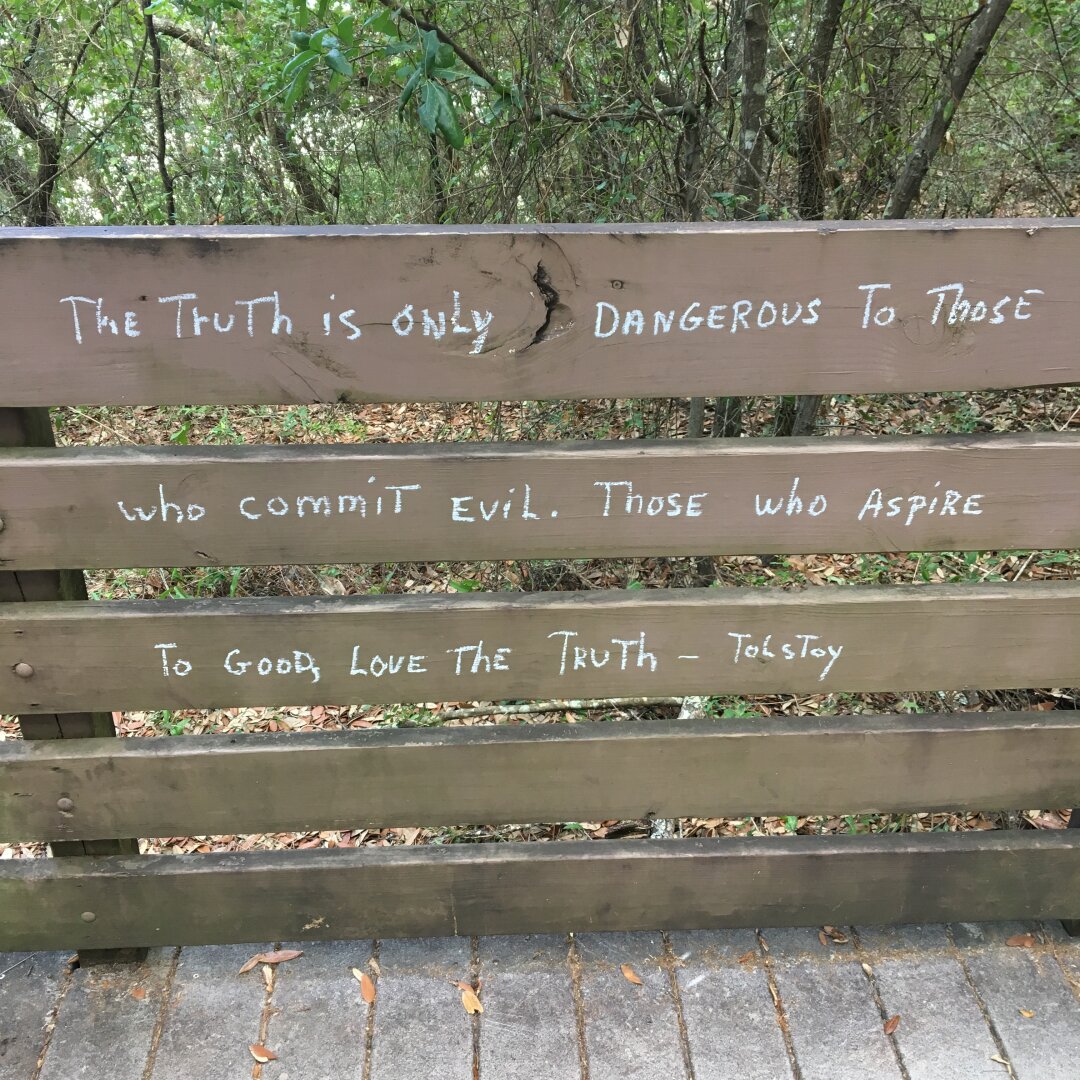 The Truth is only DANGEROUS To Those
who commit EviL. Those who AspiRE
To GOOD, LOVE THE TRUTh – ToLsToy